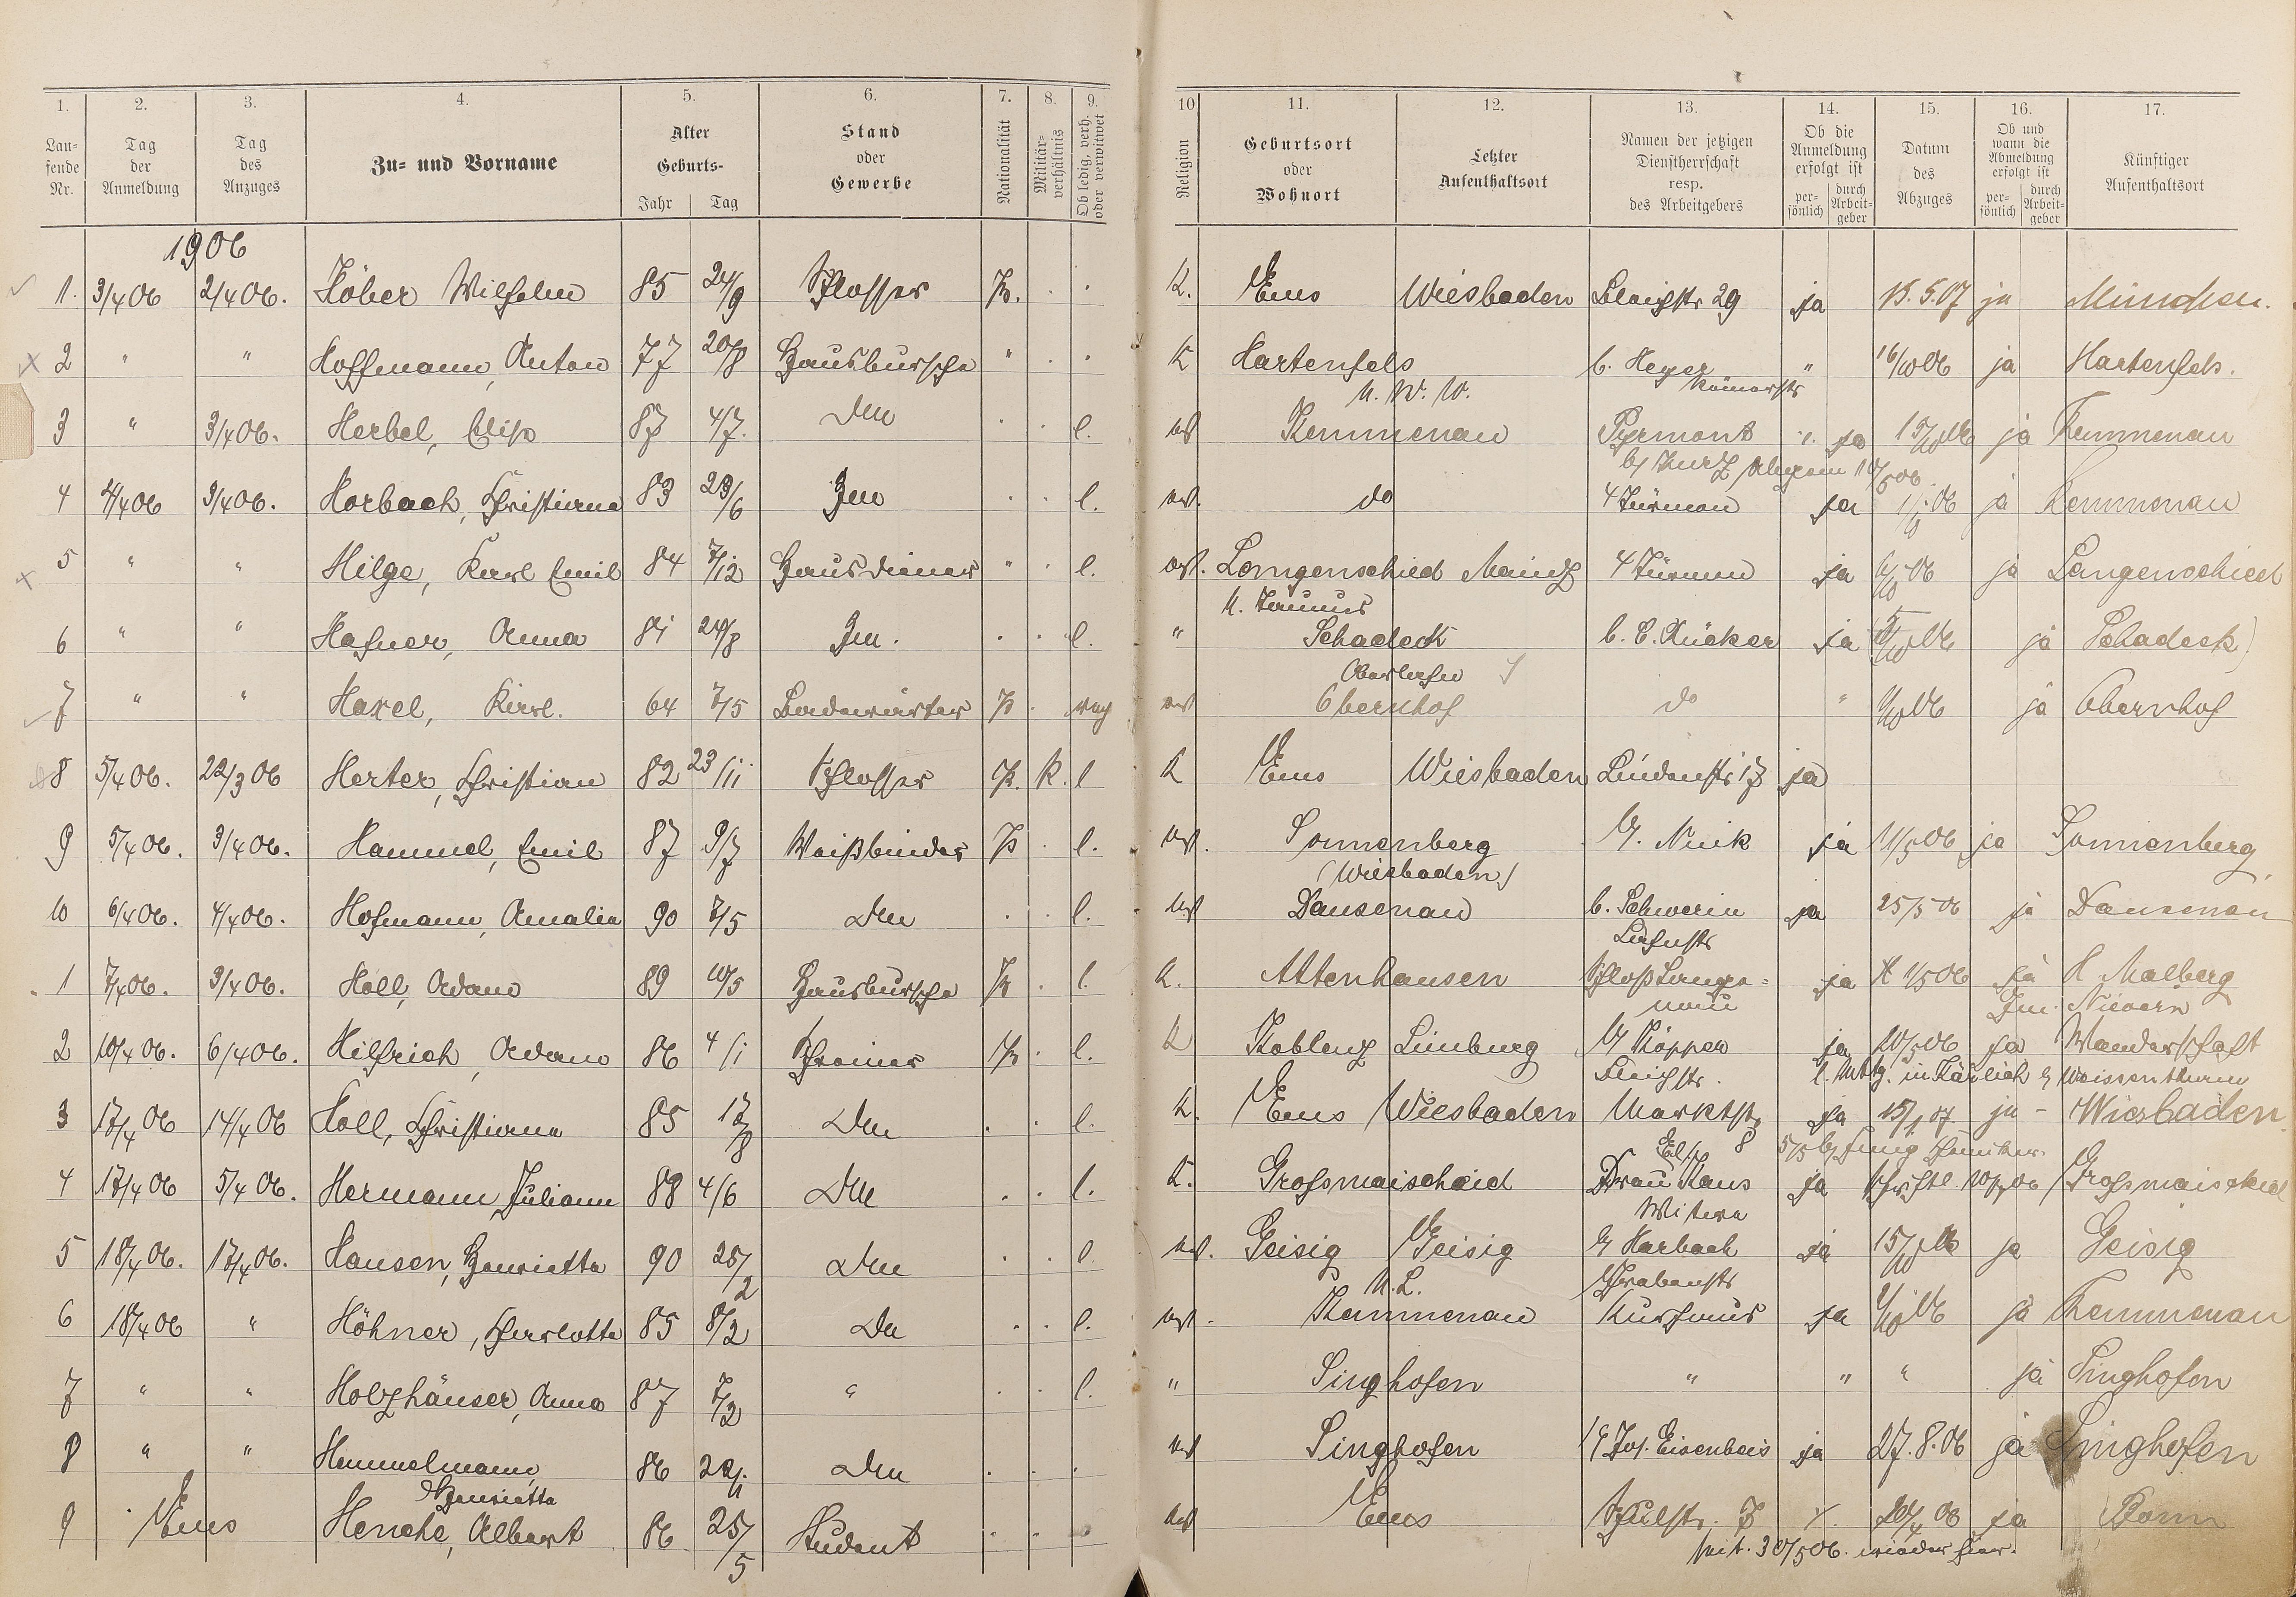 1. 2. 3. 4. 5. 6. 7. 8. 9. 10 11. 12. 13. 14. 15. 16. 17.
Laufende Nr. Tag der Anmeldung Tag des Anzuges Zu- und Vorname Alter Geburts- Jahr Tag Stand oder Gewerbe Nationalität Militärverhältnis Ob ledig, verh. oder verwitwet Religion Geburtsort oder Wohnort Letzter Aufenthaltsort Namen der jetzigen Dienstherrschaft resp. des Arbeitgebers Ob die Anmeldung erfolgt ist persönlich durch Arbeitgeber Datum des Abzuges Ob und wann die Abmeldung erfolgt ist persönlich durch Arbeitgeber Künftiger Aufenthaltsort
1906
1. 3/4 06 2/4 06. Wilhelm 85 24/9 Schlosser P. K. Ems Wiesbaden 29 ja 15.5.07 ja München.
2 " " Hoffmann, Anton 77 20/8 Hausbursche " K Hartenfels b. Heyer " 16/10 06 ja Hartenfels.
U. W. W. Römerstr
3 " 3/4 06. Herbel, Elise 87 4/7. Dm l. ev Kemmenau Pyrmont ja 15/10 06 ja Kemmenau
4 4/4 06 3/4 06. Horbach, Christiane 83 23/6 l. ev. do 4 Türmen ja ja Kemmenau
5 " " Hilge, Karl Emil 84 7/12 Hausdiener " l. ev. Langenschied Mainz 4 Türmen ja ja Langenschied
U. Taunus
6 " " Hafner, Anna 81 24/8 l. " Schadeck b. C. Rücker ja ja Schadeck
Oberlahn
7 " " Haxel, Karl. 64 7/5 Badewärter P ev Obernhof do " ja Obernhof
8 5/4 06. 22/3 06 Herter, Christian 82 23/11 Schlosser P. K. l K Ems Wiesbaden Lindenstr 17 ja
9 5/4 06. 3/4 06. Hammel, Emil 87 9/7 Weißbinder P l. ev. Sonnenberg ja 11/5 06 ja Sonnenberg
(Wiesbaden)
10 6/4 06. 4/4 06. Hofmann, Amalie 90 7/5 Dm l. ev Dausenau b. Schwerin ja 25/5 06 ja Dausenau
Lahnstr
1 7/4 06. 3/4 06. Höll, Adam 89 10/5 Hausbursche P l. K. Attenhausen Schloß Lange= ja 1/5 06 ja Malberg
nau Nievern
2 10/4 06. 6/4 06. Hilfrich, Adam 86 4/1 Schreiner P l. K Koblenz Limburg Köppen ja 20/5 06 ja Wanderschaft
in Kärlich Weissenthurm
3 17/4 06 14/4 06 Holl, Christiane 85 17/8 Dm l. K. Ems Wiesbaden Marktstr 8 ja 15/1 07. ja - Wiesbaden
4 17/4 06 5/4 06. Hermann, Juliane 88 4/6 Dm l. K. Grossmaischeid Frau Haus ja 10/7 06 Grossmaischeid
Witwe
5 18/4 06. 17/4 06. Hansen, Henriette 90 25/2 Dm l ev. Geisig Geisig Harbach ja 15/10 06 ja Geisig
U. L. Grabenstr
6 18/4 06 " Höhner, Charlotte 85 8/2 Dm l. ev. Kemmenau Kurhaus ja 1/10 06 ja Kemmenau
7 " " Holzhäuser, Anna 87 7/2 " l. " Singhofen " " " ja Singhofen
8 " " Hemmelmann, 86 Dm ev Singhofen Jos. Eisenbeis ja 27.8.06 ja Singhofen
Henriette
9 Ems Henche, Albert 86 25/5 Student ev Ems Schulstr. 7 20/4 06 ja Bonn
seit. 30/5 06. wieder hier.